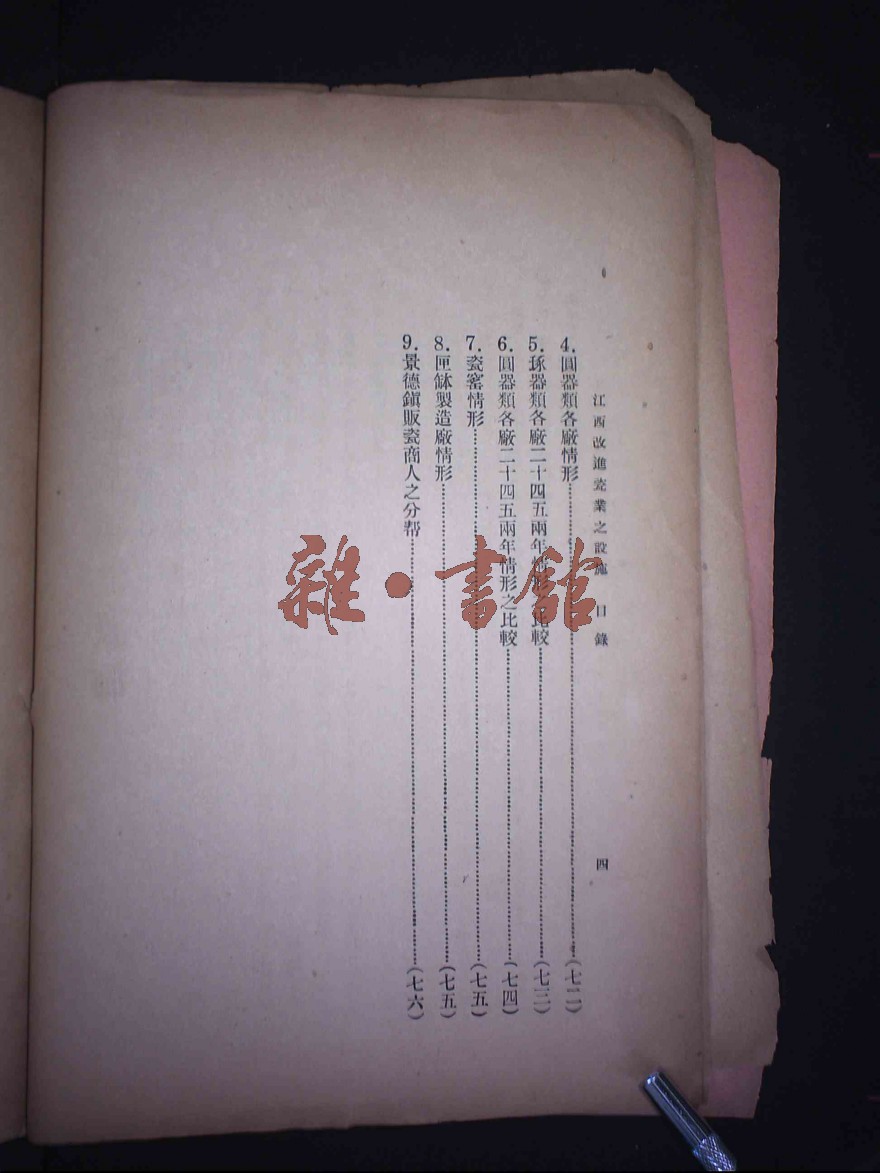 江西改進瓷業之設施 目錄 四
4. 圓器類各廠情形……(七二)
5. 琢器類各廠二十四五兩年情形之比較……(七三)
6. 圓器類各廠二十四五兩年情形之比較……(七四)
7. 瓷窰情形……(七五)
8. 匣缽製造廠情形……(七五)
9. 景德鎭販瓷商人之分幇……(七六)
雜·書館